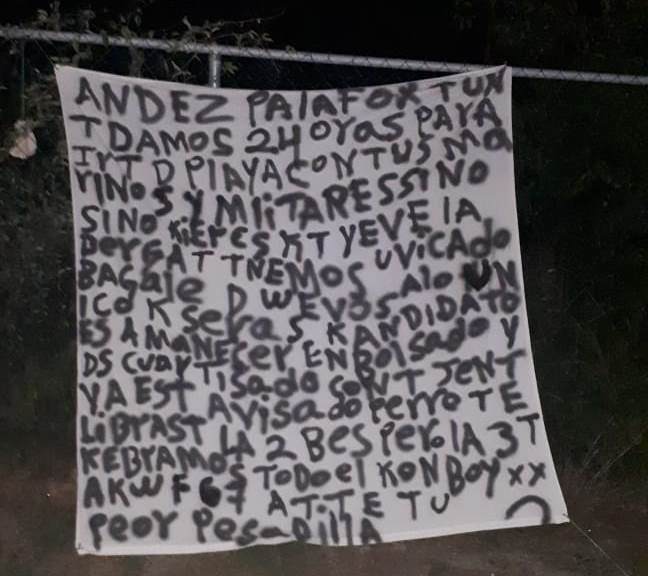 ANDEZ PAlAFOX TUN
T DAMOS 24 OYOS PAYA
IYT D PlAYA CONTUS MA
YINOS Y MILITARES SINO
SINO KIERES KT YEVE lA
DERGA T TNEMOS UVICADO
BAGALE D WEVOS Alo UN
ICO K SERAS KANDIDATO
ES AMANESER ENBOlSADO Y
DS CUAYTISADO CONT JENT
YA EST AVISADO PERRO TE
LIBYAST LA 2 BES PERO lA 3 T
KEBYAMOS TODO El KONBOY XX
AKW F ATTE TU
PEOY PESADIllA